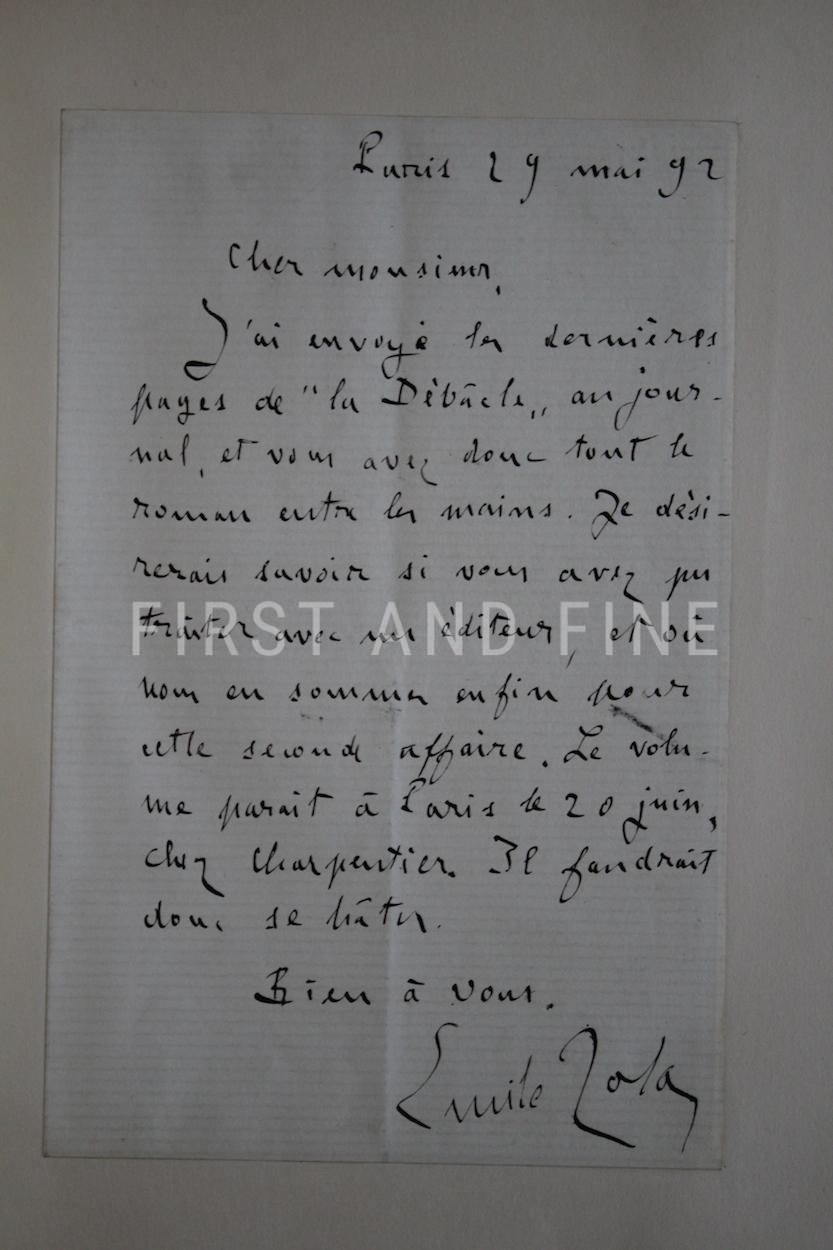 Paris 29 mai 92
Cher monsieur,
J'ai envoyé les dernières
pages de "la Débâcle„ au jour-
nal, et vous avez donc tout le
roman entre les mains. Je dési-
rerais savoir si vous avez pu
traiter avec un éditeur, et où
FIRST AND FINE
nous en sommes enfin pour
cette seconde affaire. Le volu-
me paraît à Paris le 20 juin,
chez Charpentier. Il faudrait
donc se hâter.
Bien à vous.
Emile Zola